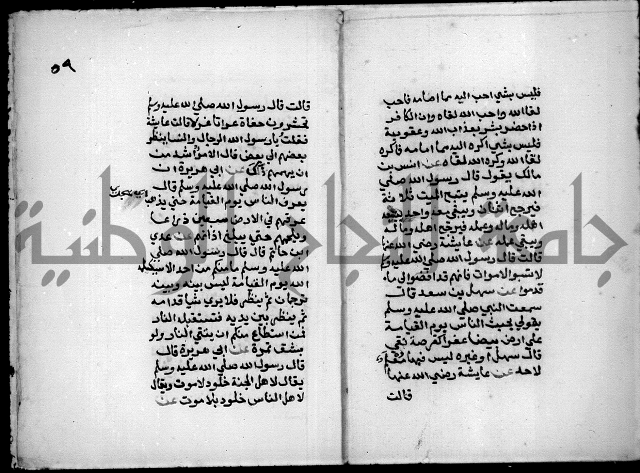 فليس بشي احب اليه مما امامه فاحب
لقا الله واحب الله لقاه وان الكافر
اذا حضر بشر بعذاب الله وعقوبته
فليس شي اكره اليه مما امامه فاكره
لقا الله وكره الله لقاه عن انس بن
مالك يقول قال رسول الله صلي
الله عليه وسلم يتبع الميت ثلاثة
فيرجع اثنان ويبقي معه واحد يتبعه
اهله وماله وعمله فيرجع اهله وماله
ويبقي عمله عن عايشة رضي الله عنها
قالت قال رسول الله صلي الله عليه وسلم
لا تسبوا الاموات فانهم قد افضوا الي ما
قدموا عن سهل بن سعد قال
سمعت النبي صلي الله عليه وسلم
يقول يحشر الناس يوم القيامة
علي ارض بيضا عفرا كقرصة نقي
قال سهل او غيره ليس فيها معلم
لاحد عن عايشة رضي الله عنها
قالت
٥٩
قالت قال رسول الله صلي الله عليه وسلم
تحشرون حفاة عراة غرلا قالت عايشة
فقلت يا رسول الله الرجال والنسا ينظر
بعضهم الي بعض قال الامر اشد من
ان يهمهم ذلك عن ابي هريرة ان
رسول الله صلي الله عليه وسلم قال
يعرق الناس يوم القيامة حتي يذهب
عرقهم في الارض سبعين ذراعا
ويلجمهم حتي يبلغ اذانهم عن عدي
ابن حاتم قال قال رسول الله صلي
الله عليه وسلم ما منكم من احد الا سيكلمه
الله يوم القيامة ليس بينه وبينه
ترجمان ثم ينظر فلا يري شيا قدامه
ثم ينظر بين يديه فتستقبله النار
فمن استطاع منكم ان يتقي النار ولو
بشق تمرة عن ابي هريرة قال
قال رسول الله صلي الله عليه وسلم
يقال لاهل الجنة خلود لا موت ويقال
لاهل الناس خلود بلا موت عن
جامعة النجاح الوطنية